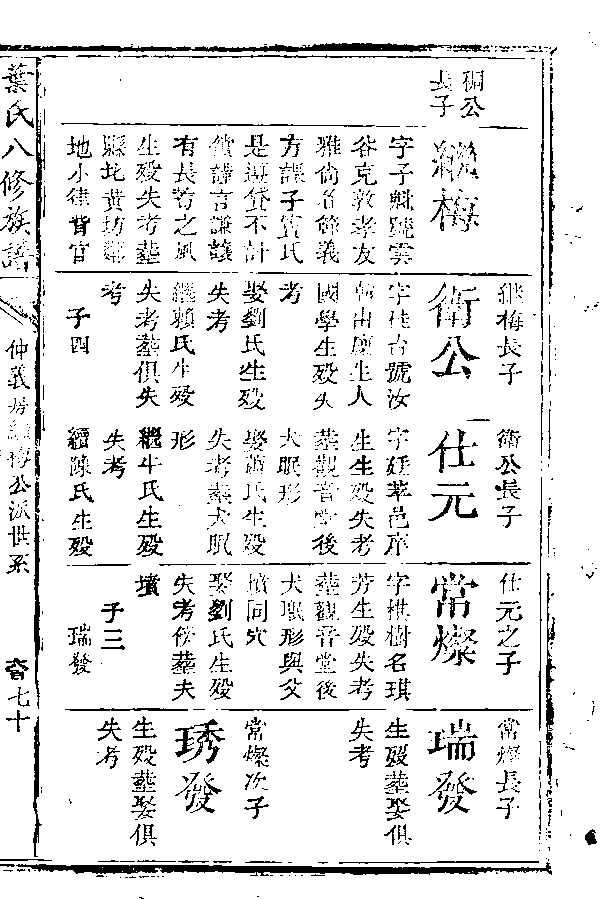 秱公
長子
繼梅
字子魁號雲
谷克敦孝友
雅尚名節義
方課子賓氏
是海貸不計
償譁言謙讓
有長者之風
生殁失考葬
縣北黃坊鄰
地小律背官
繼梅長子
衛公
字佳台號汝
生人
國學生殁失
考
娶劉氏生殁
失考
繼賴氏生殁
失考葬俱失
考
子四
衛公長子
仕元
字廷萃邑庠
生生殁失考
葬觀音堂後
犬眠形
娶蕭氏生殁
失考葬犬眠
形
繼牛氏生殁
失考
續陳氏生殁
仕元之子
常燦
字棋樹名琪
芳生殁失考
葬觀音堂後
犬眠形與父
墳同穴
娶劉氏生殁
失考傍葬夫
墳
子三
瑞發
常燦長子
瑞發
生殁葬娶俱
失考
常燦次子
琇發
生殁葬娶俱
失考
葉氏八修族譜
仲義房繼梅公派世系
七十